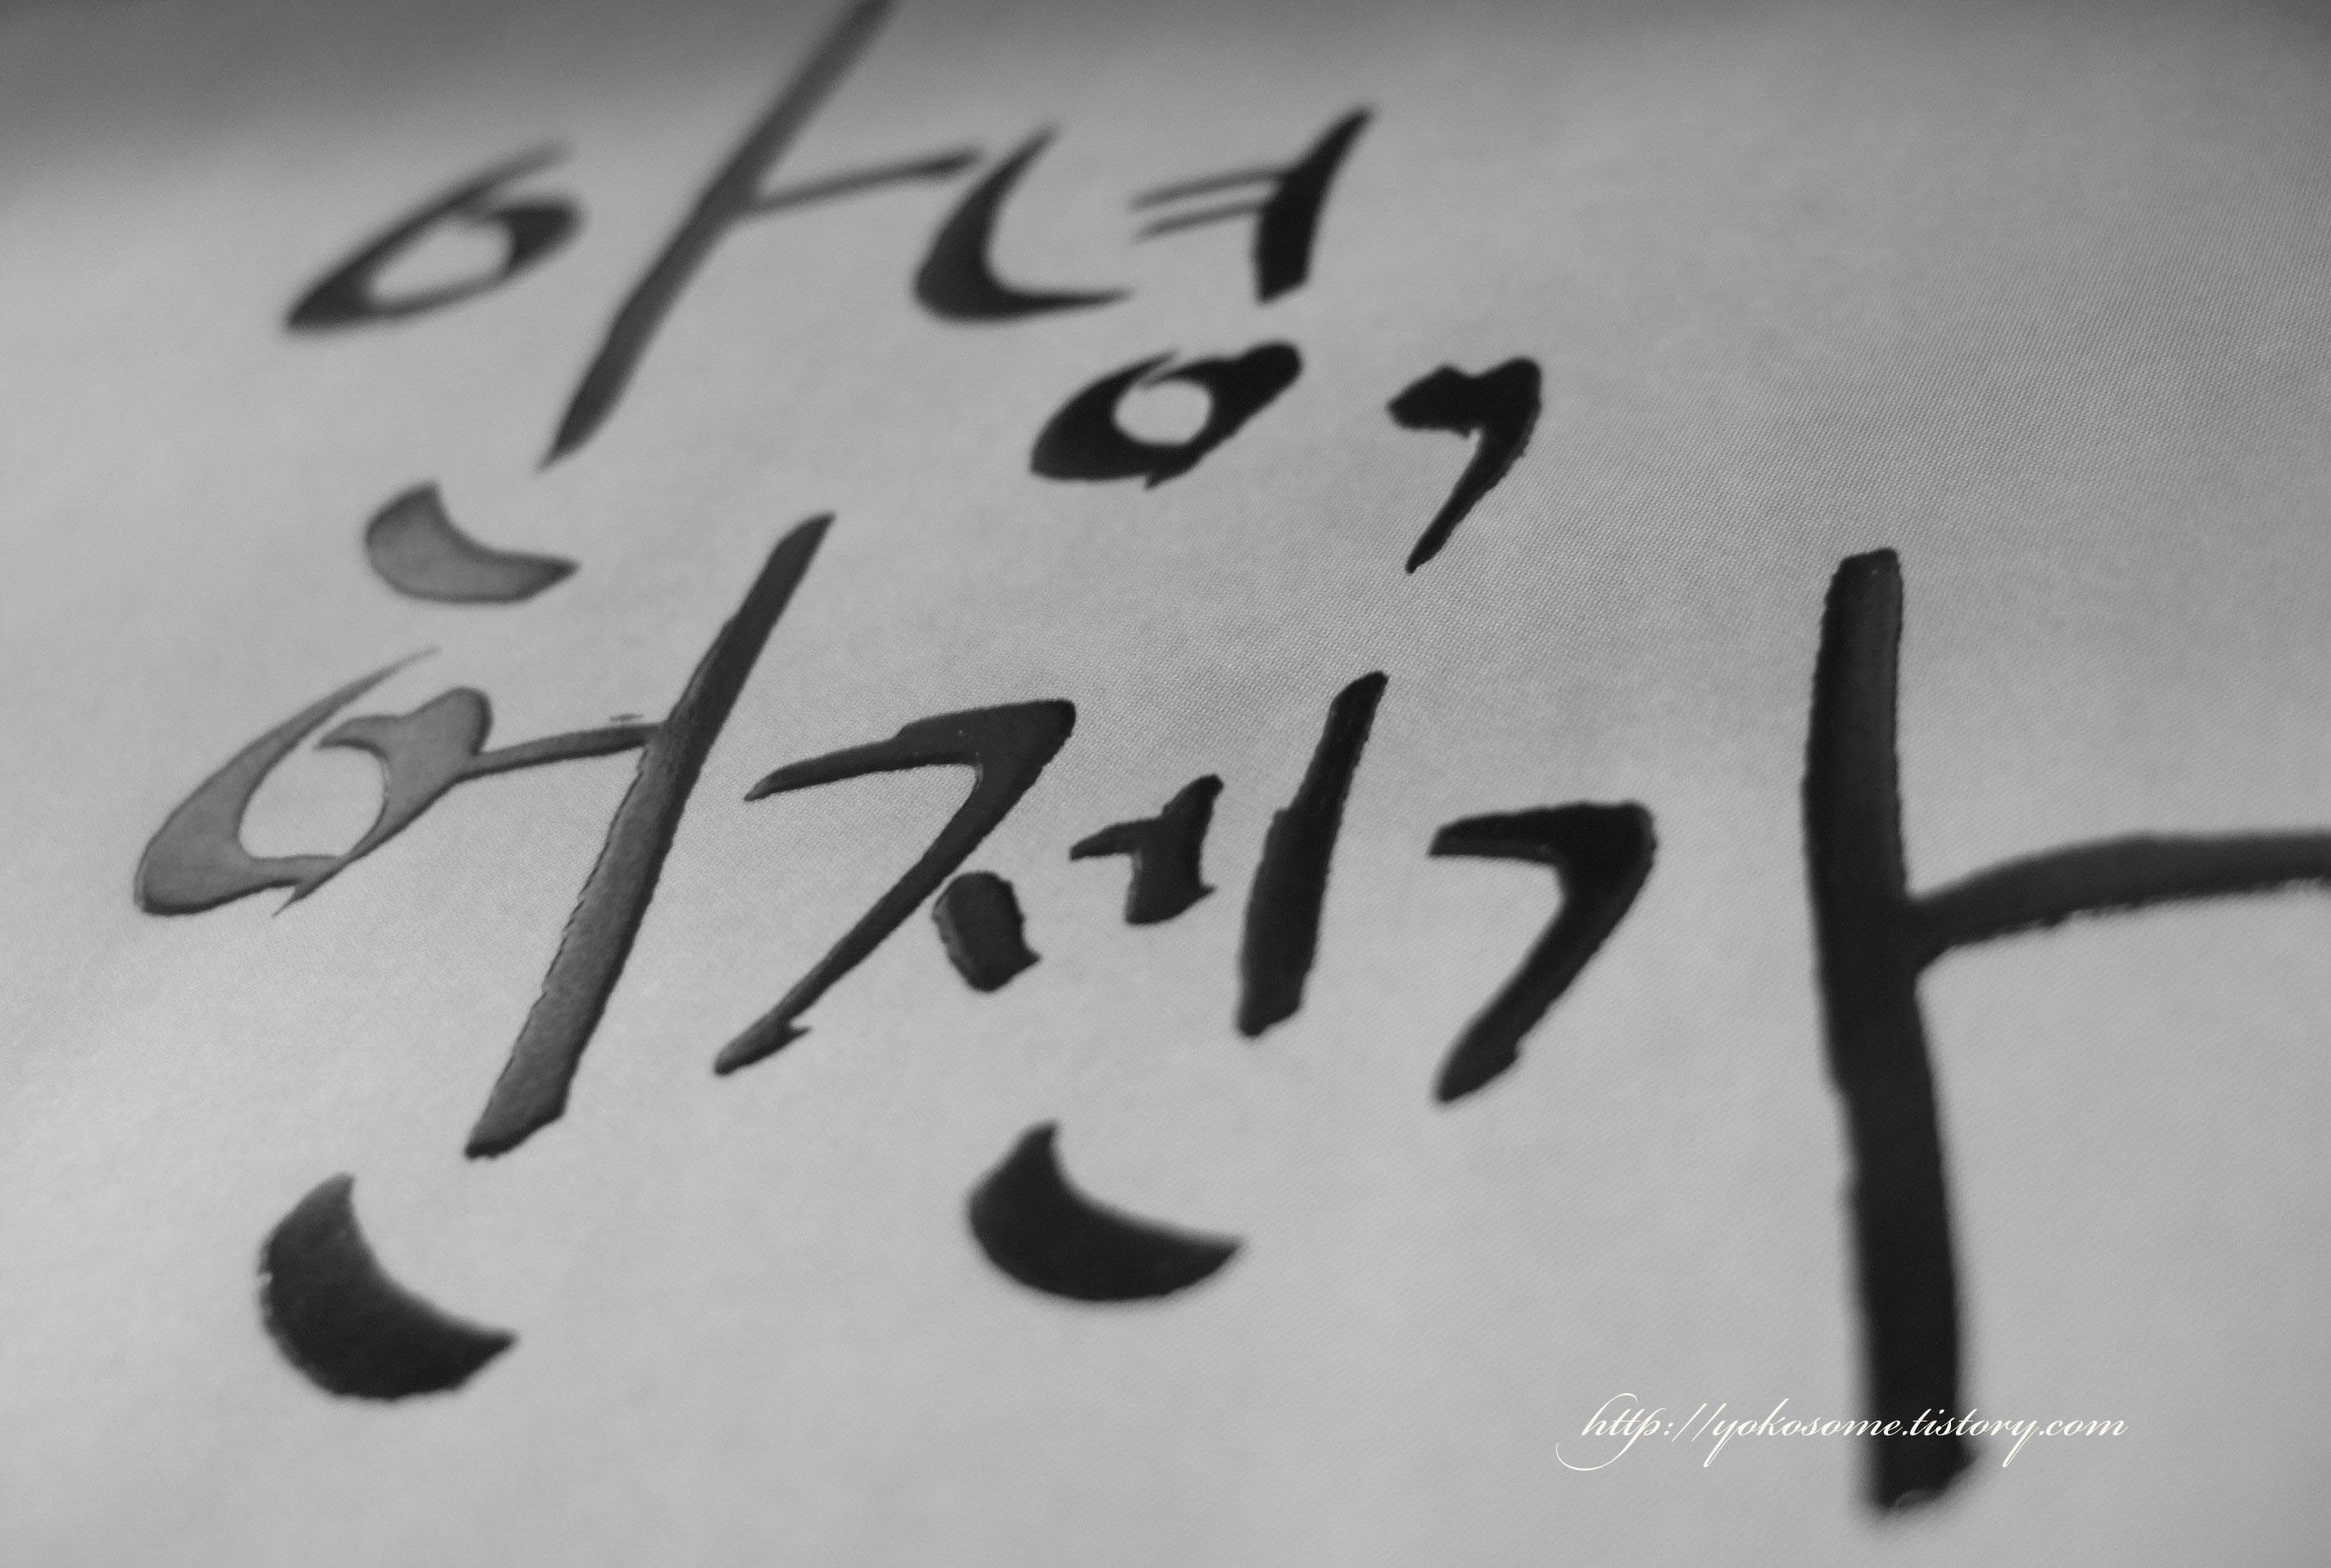 안녕,
언젠가
http://yokosome.tistory.com